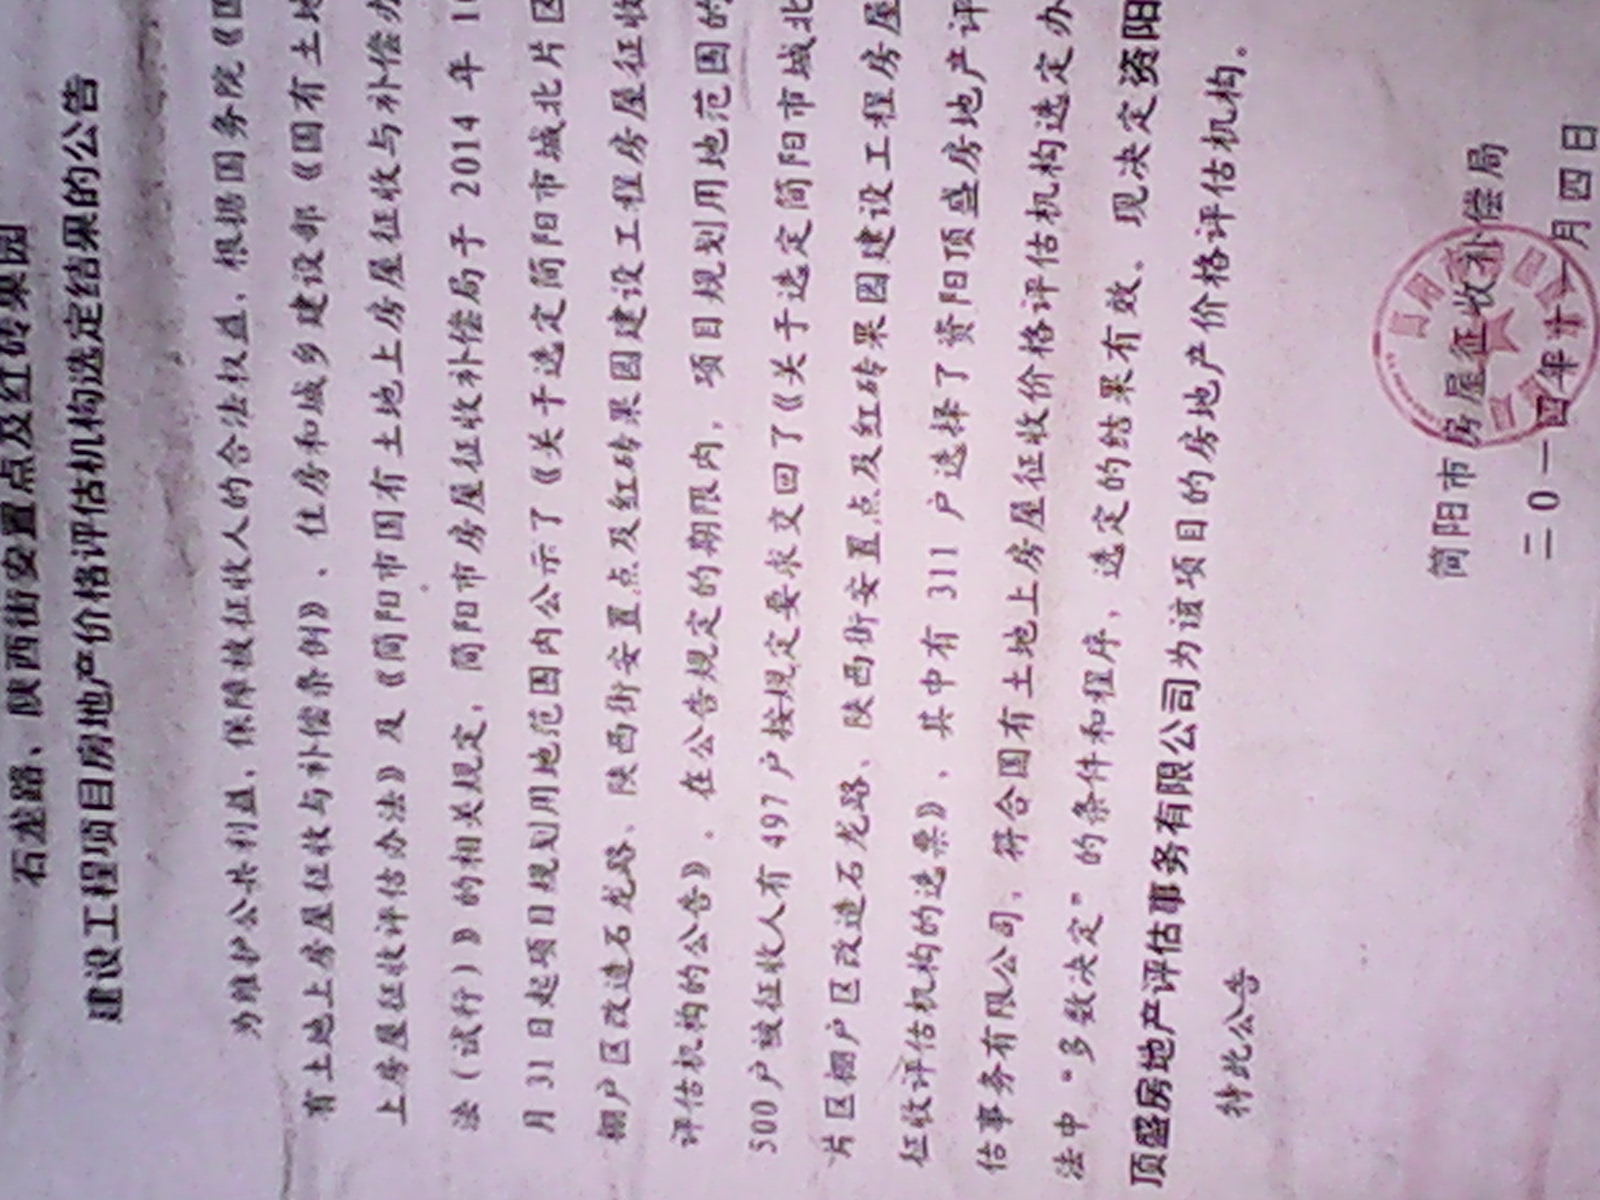 石龙路、陕西街安置点及红砖果园
建设工程项目房地产价格评估机构选定结果的公告
为维护公共利益，保障被征收人的合法权益，根据国务院《国
有土地上房屋征收与补偿条例》、住房和城乡建设部《国有土地
上房屋征收评估办法》及《简阳市国有土地上房屋征收与补偿办
法（试行）》的相关规定，简阳市房屋征收补偿局于 2014 年 10
月 31 日起项目规划用地范围内公示了《关于选定简阳市城北片区
棚户区改造石龙路、陕西街安置点及红砖果园建设工程房屋征收
评估机构的公告》。在公告规定的期限内，项目规划用地范围的
500 户被征收人有 497 户按规定要求交回了《关于选定简阳市城北
片区棚户区改造石龙路、陕西街安置点及红砖果园建设工程房屋
征收评估机构的选票》，其中有 311 户选择了资阳顶盛房地产评
估事务有限公司，符合国有土地上房屋征收价格评估机构选定办
法中“多数决定”的条件和程序，选定的结果有效。现决定资阳
顶盛房地产评估事务有限公司为该项目的房地产价格评估机构。
特此公告
简阳市房屋征收补偿局
二0一四年十一月四日